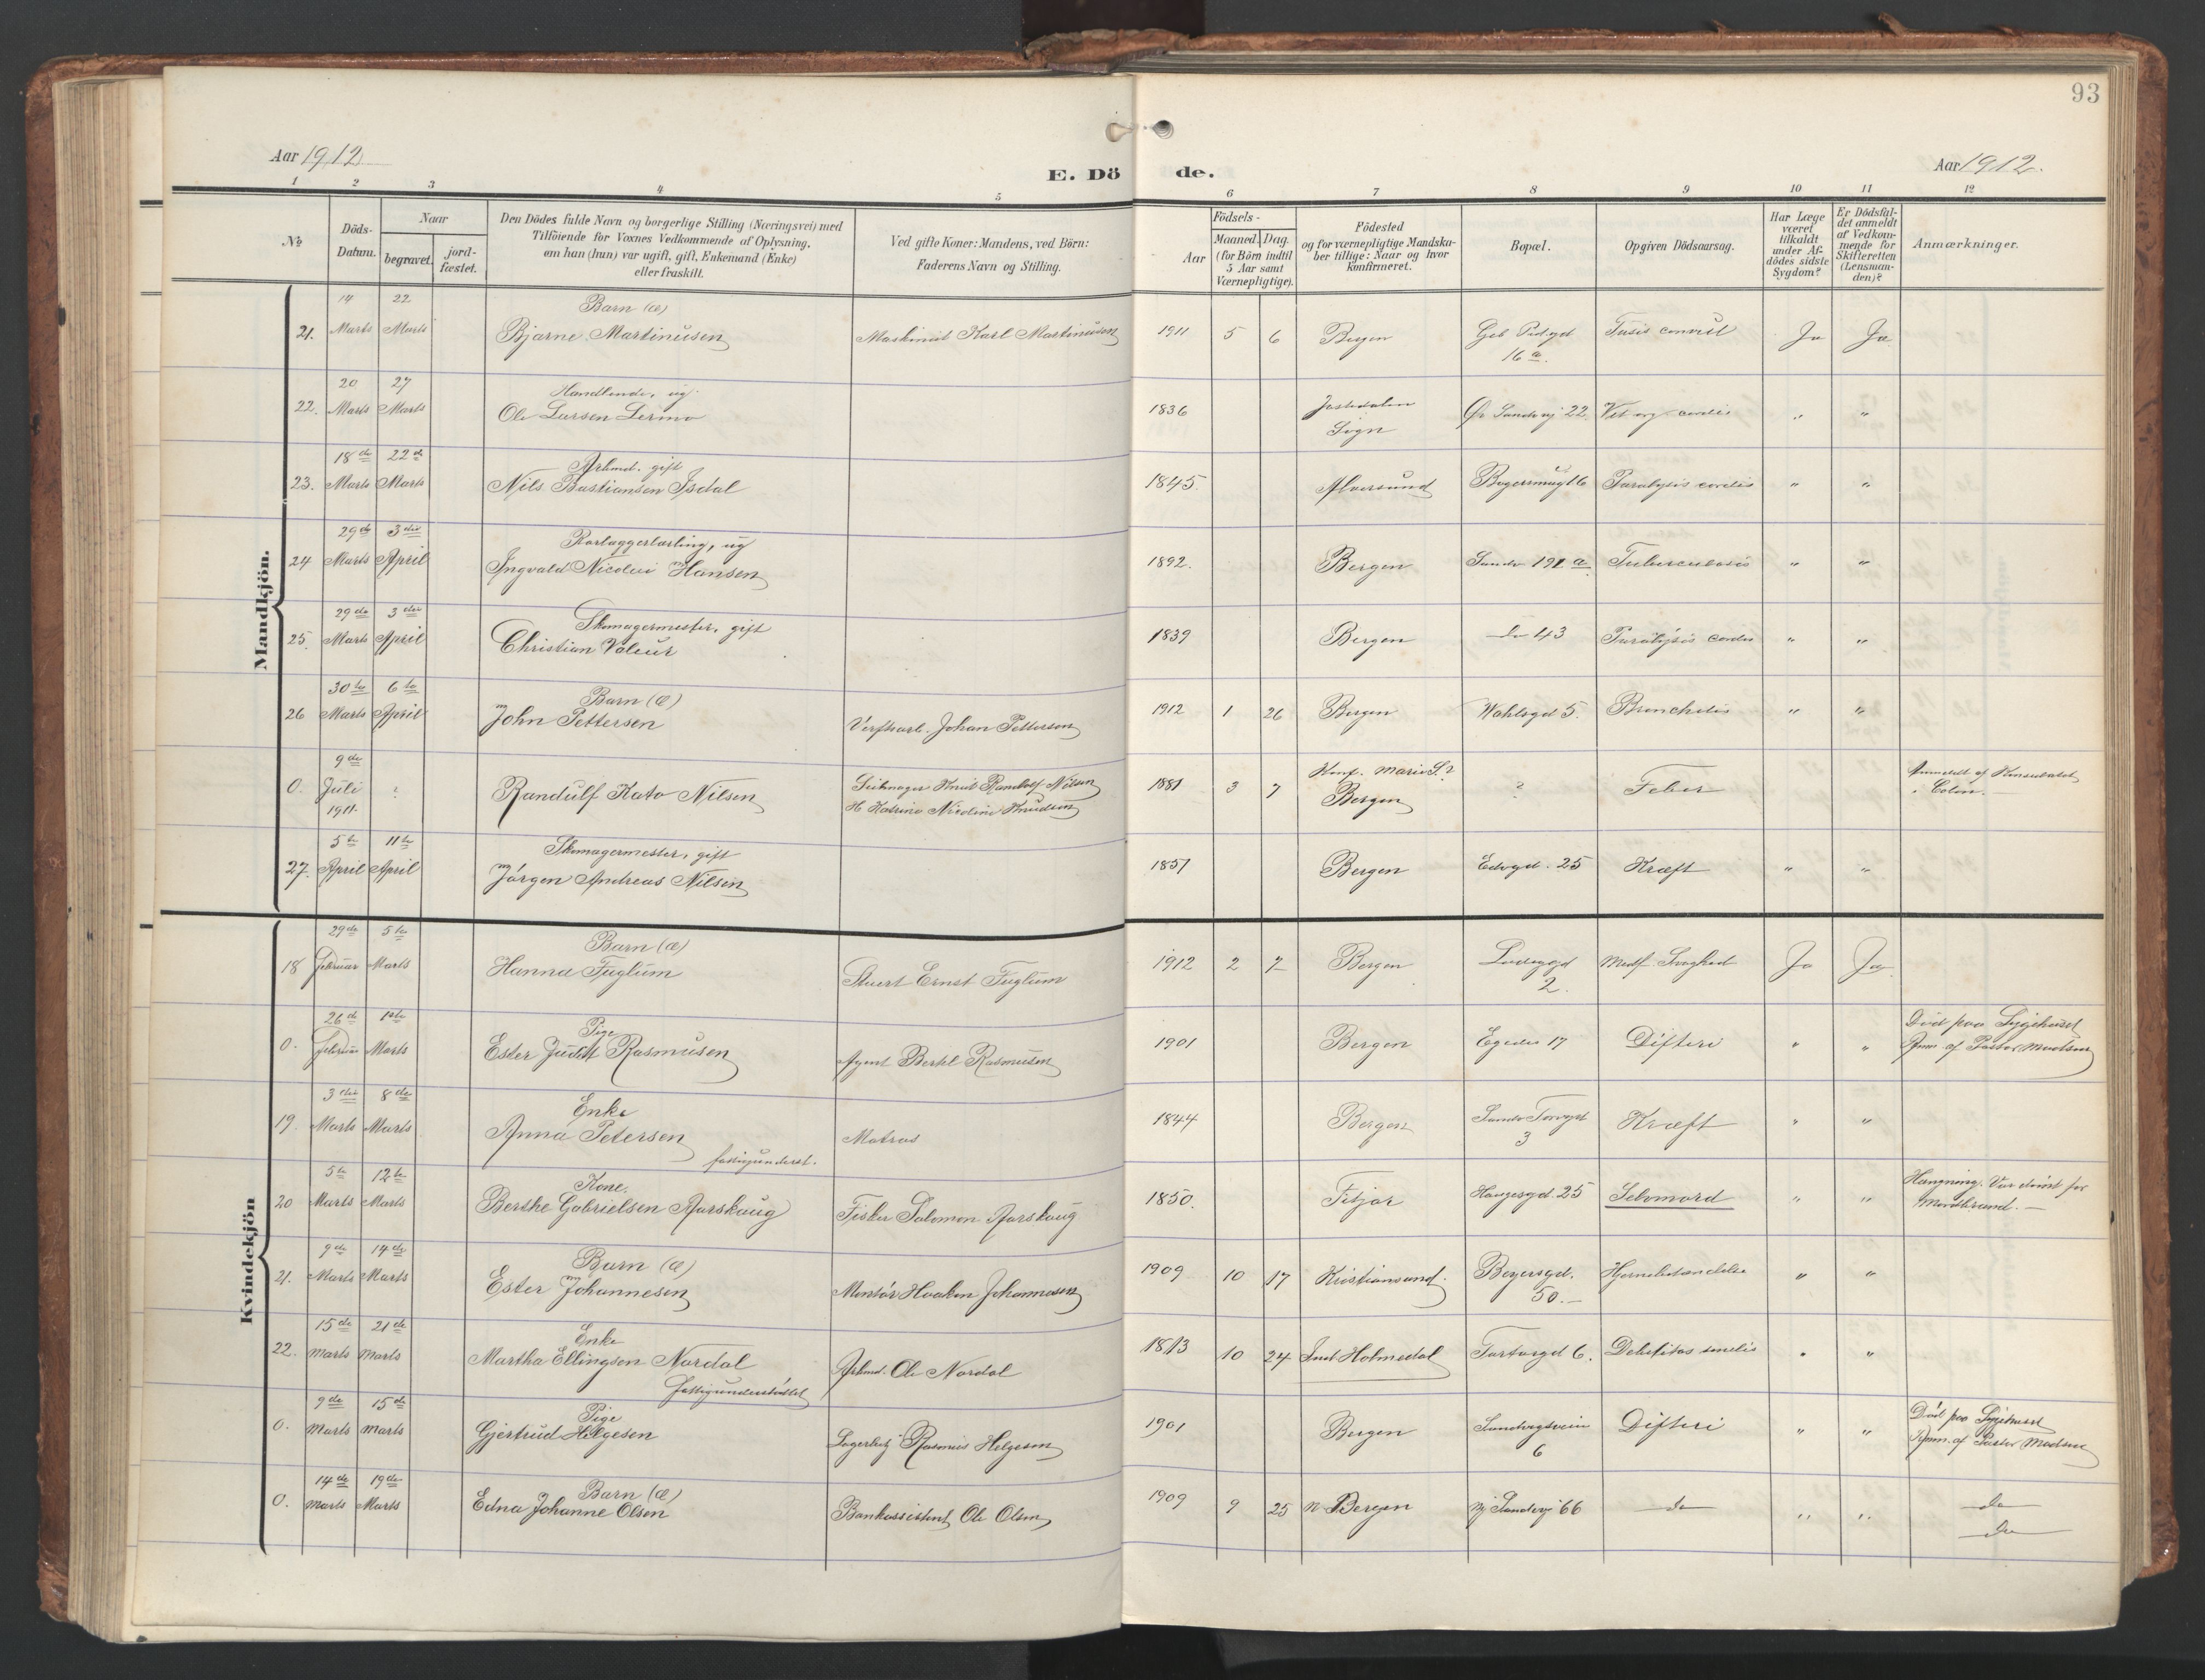 93
Aar 1912
E. Dö de.
Aar 1912.
1 2 3 4 5 6 7 8 9 10 11 12
№
Döds-Datum.
Naar
begravet.
jord-fæstet.
Den Dödes fulde Navn og borgerlige Stilling (Næringsvei) med
Tilföiende for Voxnes Vedkommende af Oplysning,
om han (hun) var ugift, gift, Enkemand (Enke)
eller fraskilt.
Ved gifte Koner: Mandens, ved Börn:
Faderens Navn og Stilling.
Födsels-
Aar
Maaned. Dag.
(for Börn indtil
5 Aar samt
Værnepligtige).
Födested
og for værnepligtige Mandska-
ber tillige: Naar og hvor
konfirmeret.
Bopæl.
Opgiven Dödsaarsag.
Har Læge
været
tilkaldt
under Af-
dödes sidste
Sygdom?
Er Dödsfal-
det anmeldt
af Vedkom-
mende for
Skifteretten
(Lensman-
den)?
Anmærkninger.
Mandkjön.
14 22 Barn (æ)
21. Marts Marts Bjarne Martinusen Maskinist Karl Martinusen 1911 5 6 Bergen Ja Ja
16 a.
20 27 Handlende, ug.
22. Marts Marts Ole Larsen Lermo 1836 Jostedalen Øv Sandvej 22 Vit. org. cordis " "
Sogn
18de 22de Arbmd. gift
23. Marts Marts Nils Bastiansen Isdal 1845. Alversund Paralysis cordis " "
29de 3die Rørlæggerlærling, ug
24 Marts April Ingvald Nicolai Hansen 1892. Bergen Tuberculosis " "
29de 3die Skomagermester, gift
25. Marts April Christian Valeur 1839 Bergen do 43 Paralysis cordis " "
30te 6te Barn (æ)
26 Marts April John Pettersen Verftsarb. Johan Pettersen 1912 1 26 Bergen Wahlsgd 5. Bronchitis " "
9de
0. Juli ? Randulf Kato Nilsen 1881 3 7 Konf. Marie S.? ? Feber Anmeldt af Konsulatet
1911. H. Katrine Nicoline Knudsen Bergen i Colon.
5te 11te Skomagermester, gift
27. April April Jørgen Andreas Nilsen 1851 Bergen Edvgd. 25 Kræft " "
Kvindekjön
29de 5te Barn (æ)
18 Februar Marts Hanna Fuglum Stuert Ernst Fuglum 1912 2 7 Bergen Medf. Svaghed Ja Ja
2.
26de 1ste Pige
0. Februar Marts Ester Judith Rasmusen Agent Bertel Rasmusen 1901 Bergen Egedes 17 Difteri " " Død paa Sygehuset
Anm. af Pastor Madsen
3die 8de Enke
19. Marts Marts Anna Petersen Matros 1844 Bergen Sandv Torvgd Kræft " "
fattigunderst. 3
5te 12te Kone.
20 Marts Marts Berthe Gabrielsen Aarskaug Fisker Salomon Aarskaug 1850. Fitjar Haugesgd. 25 Selvmord " " Hængning. Var dømt for
Mordbrand.
9de 14de Barn (æ)
21. Marts Marts Ester Johannesen Montør Haakon Johannesen 1909 10 17 Kristiansund. Beyersgd. Hjernebetændelse " "
50.
15de 21de Enke
22. Marts Marts Martha Ellingsen Nordal Arbmd. Ole Nordal 1813 10 24 Ind. Holmedal Tartargd 6. Debilitas senilis " "
fattigunderstøttet
9de 15de Pige
0. Marts Marts Gjertrud Helgesen Lagerbetj. Rasmus Helgesen 1901 Bergen Sandvigsveien Difteri " " Død paa Sygehuset
6 Anm. af Pastor Madsen
14de 19de Barn (æ)
0. Marts Marts Edna Johanne Olsen Bankassistent Ole Olsen 1909 9 25 Bergen Ny Sandvej 66 do " " do
do